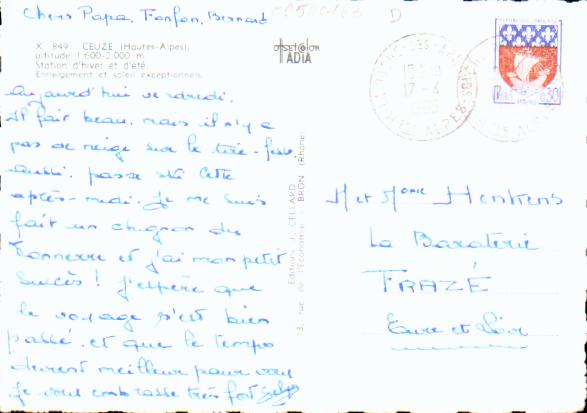 Chers Papa, Fonfon, Bernard
X 849 CEUZE (Hautes-Alpes)
altitude 1 600-2 000 m
Station d'hiver et d'été
Enneigement et soleil exceptionnels
offset color
IADIA
Aujourd'hui vendredi.
Il fait beau, mais il n'y a
pas de neige sur le tire-fesse.
Aussi, passe ski cette
après-midi. Je me suis
fait un chignon du
Tonnerre et j'ai mon petit
succès ! J'espère que
le voyage s'est bien
passé. et que le temps
devient meilleur pour vous
Je vous embrasse très fort
Editions J. CELLARD
13, rue de l'Economie - BRON (Rhône)
17-4
0,30
M et Mme Henkens
La Baraterie
FRAZÉ
Eure et Loir